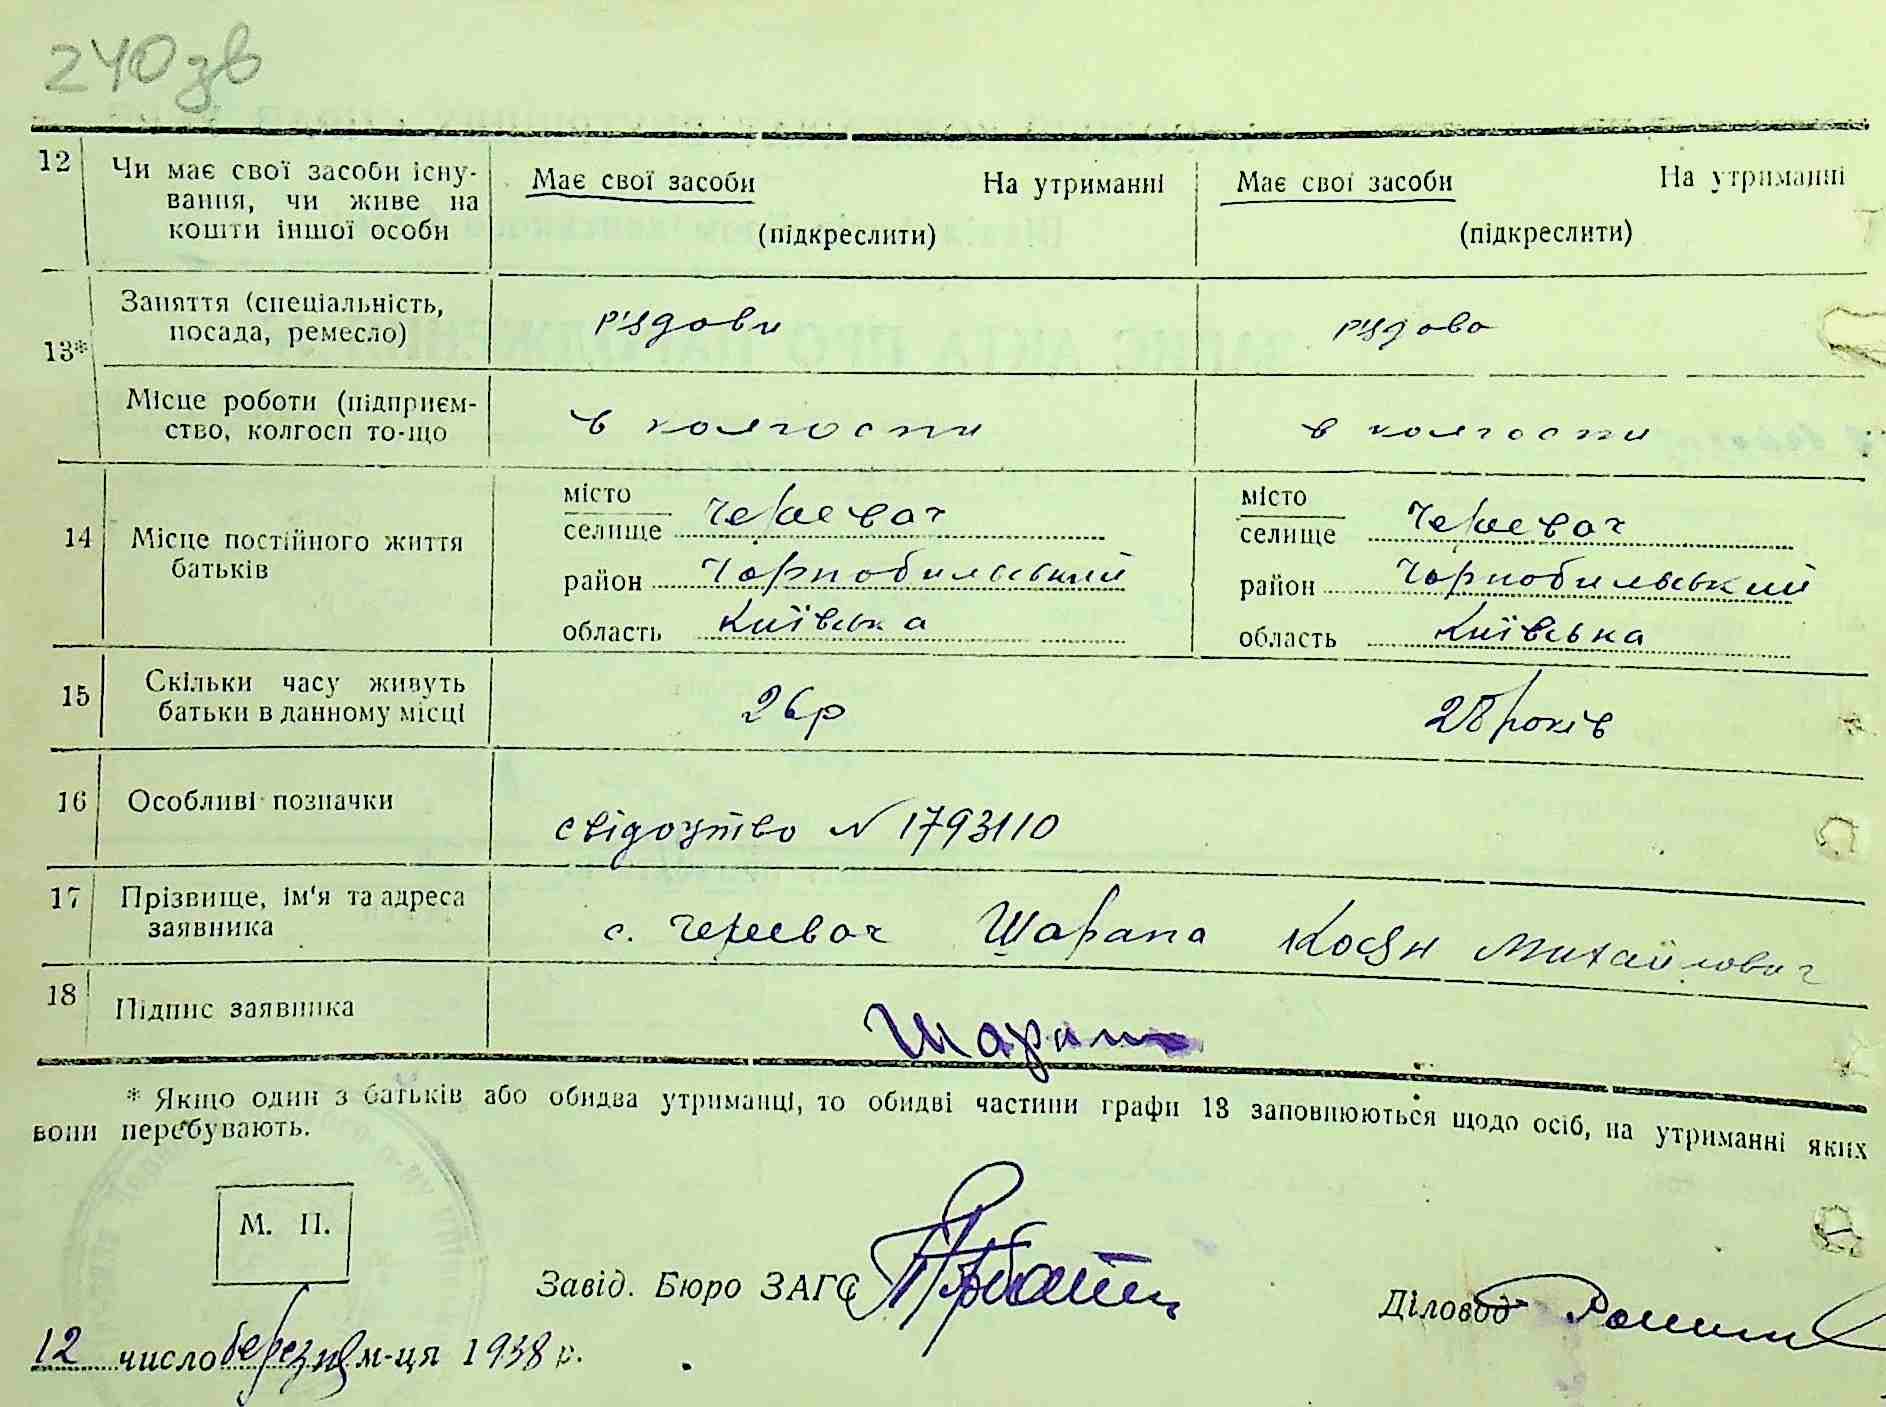 240зв
12 Чи має свої засоби існу- Має свої засоби На утриманні Має свої засоби На утриманні
вання, чи живе на
кошти іншої особи (підкреслити) (підкреслити)
13* Заняття (спеціальність, р'ядови р'ядова
посада, ремесло)
Місце роботи (підприєм- в колгоспи в колгоспи
ство, колгосп то-що
14 Місце постійного життя батьків
місто
селище Черевач
район Чорнобильський
область Київська
місто
селище Черевач
район Чорнобильський
область Київська
15 Скільки часу живуть 26р 28 років
батьки в данному місці
16 Особливі позначки свідоцтво N 1793110
17 Прізвище, ім'я та адреса с. Черевач Шарапа Косян Михайлович
заявника
18 Підпис заявника Шарап
* Якщо один з батьків або обидва утриманці, то обидві частини графи 13 заповнюються щодо осіб, на утриманні яких
вони перебувають.
М. П.
Завід. Бюро ЗАГС
Діловод
12 число березня м-ця 1938 р.